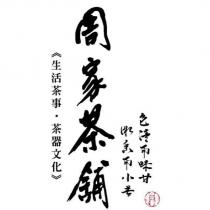 周家茶鋪
色清而味甘
微香而小苦
《生活茶事·茶器文化》